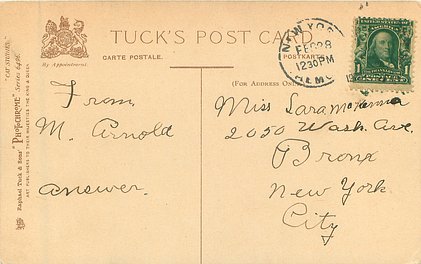 TUCK'S POST CARD
By Appointment
CARTE POSTALE.
POSTKARTE
(FOR ADDRESS ONLY)
"CAT STUDIES."
Raphael Tuck & Sons' "PHOTOCHROME" Series
ART PUBLISHERS TO THEIR MAJESTIES THE KING & QUEEN.
NEW YORK
FEB 28
12 30 PM
1
From
M. Arnold
answer.
Miss Sara
2050 Wash. Ave.
Bronx
New York
City